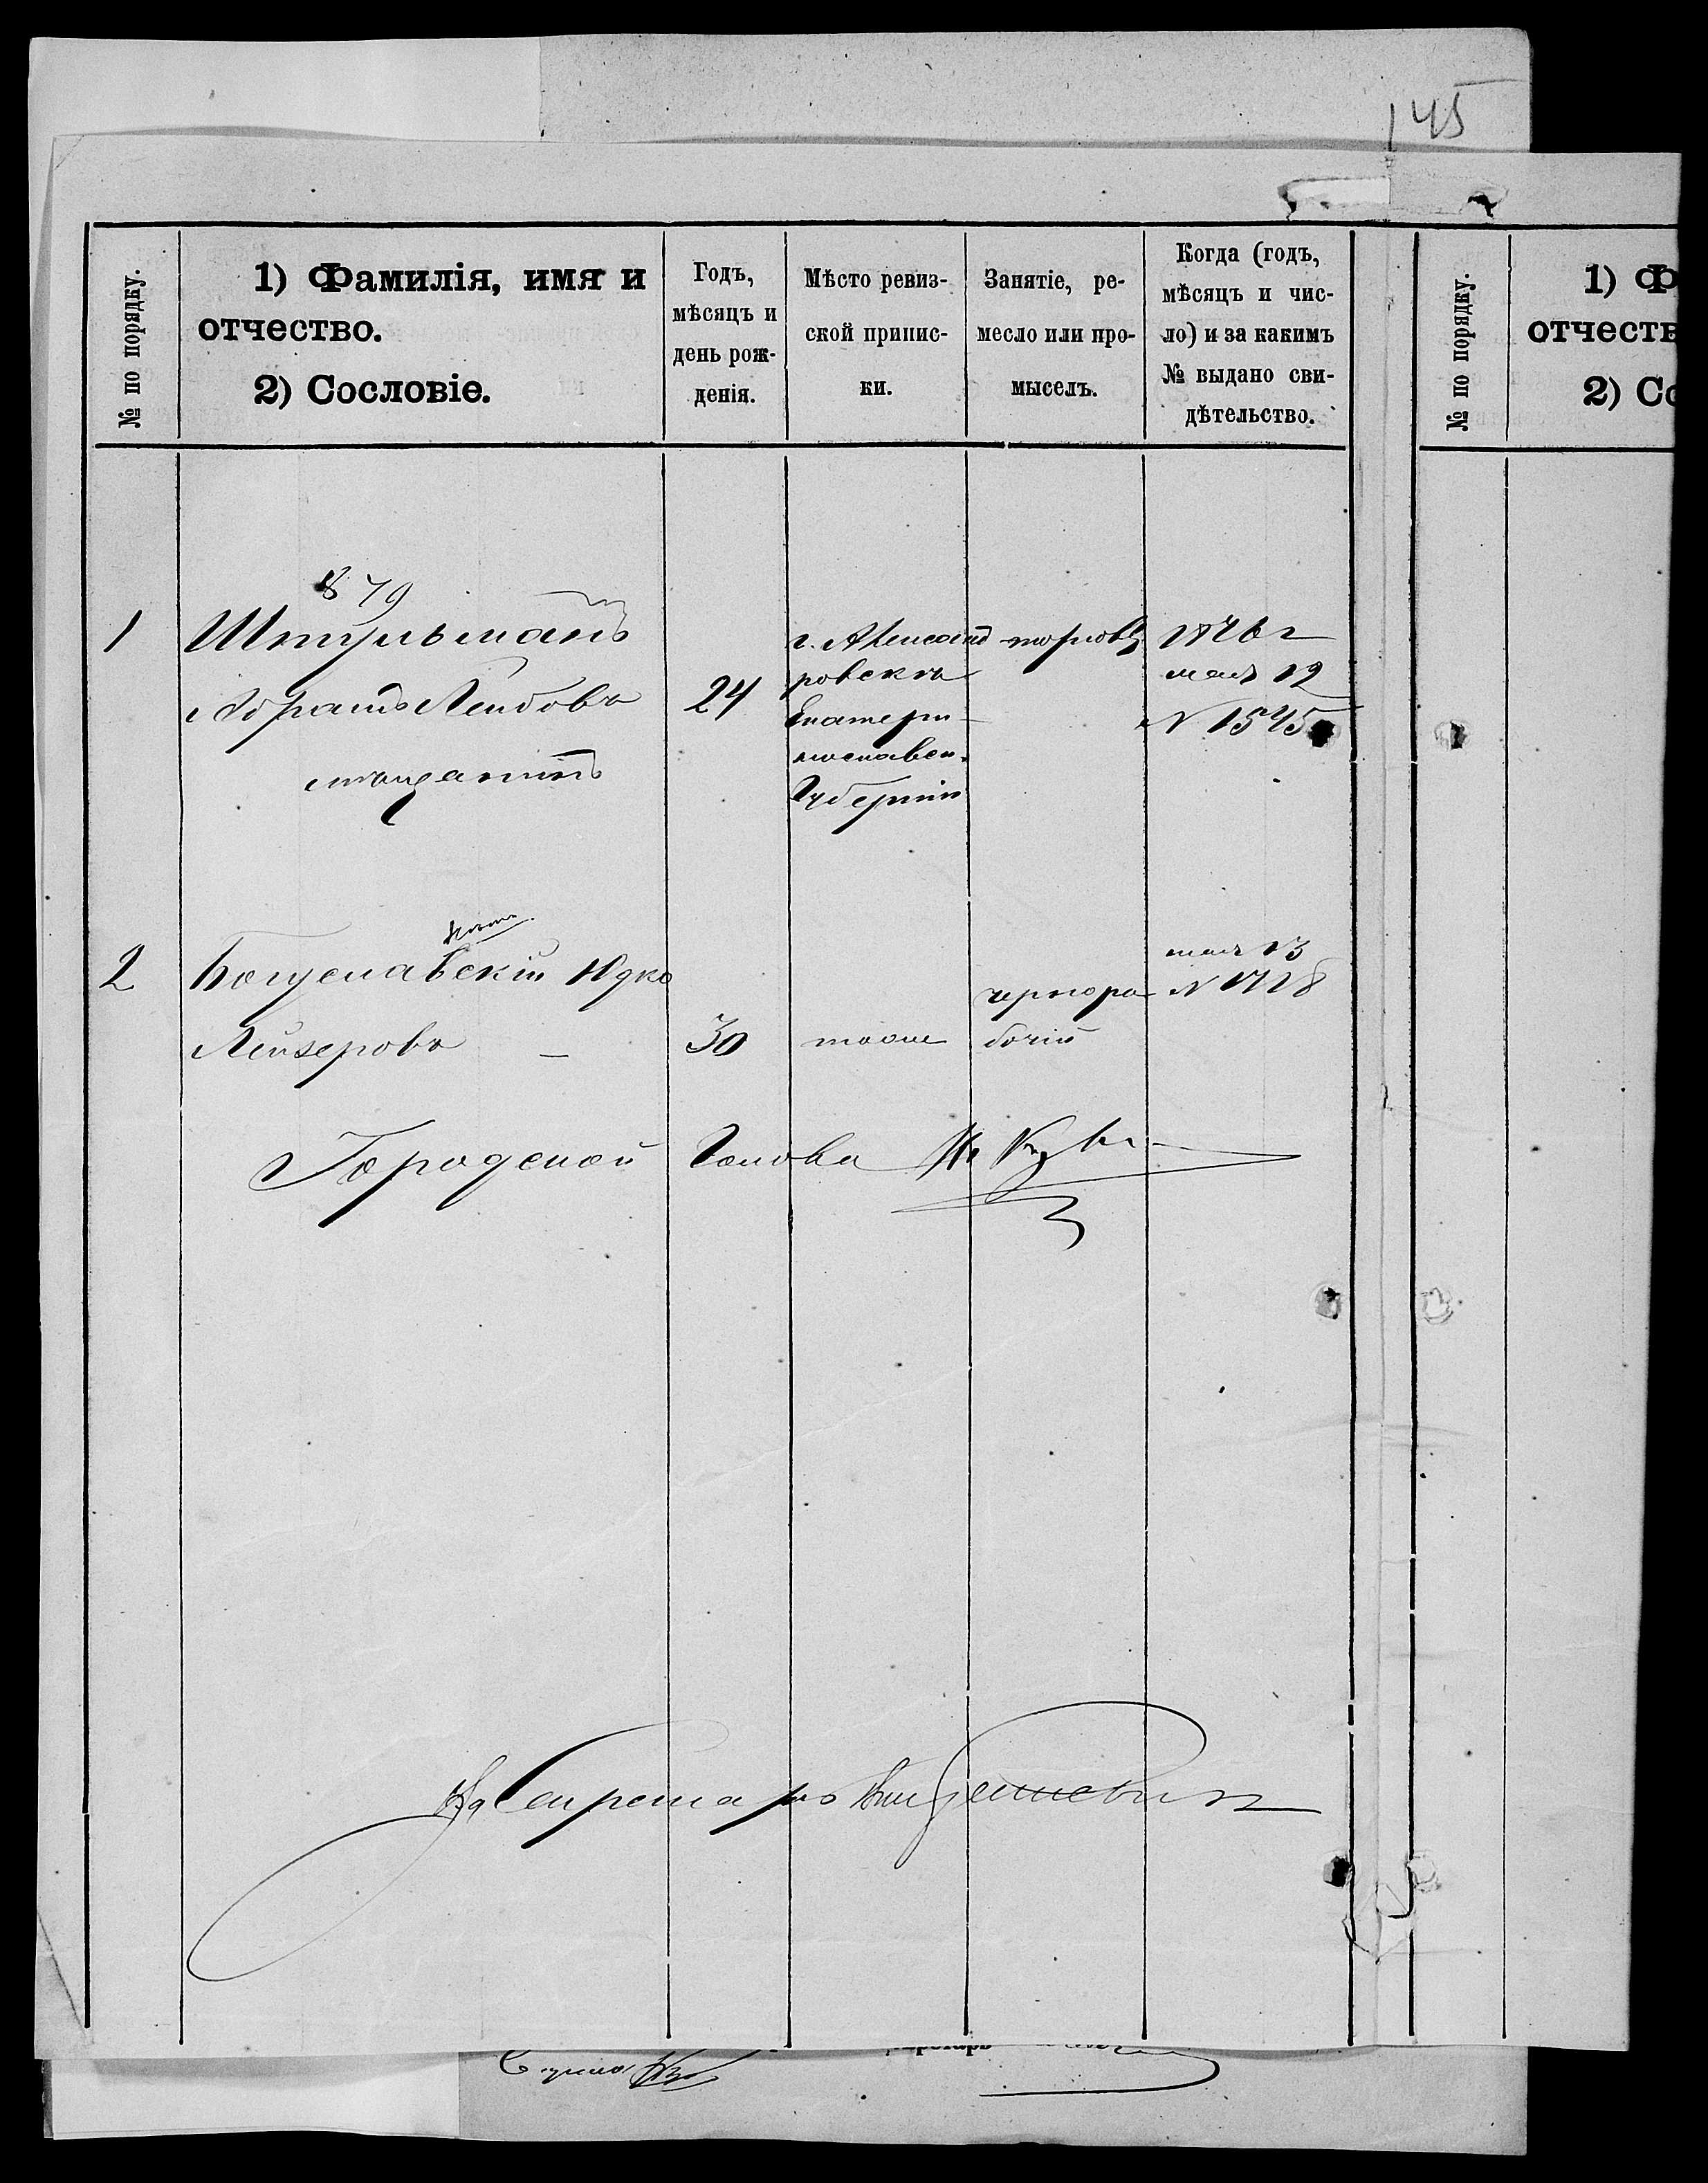 145
№ по порядку.
1) Фамилія, имя и
отчество.
2) Сословіе.
Годъ,
мѣсяцъ и
день рож-
денія.
Мѣсто ревиз-
ской припис-
ки.
Занятіе, ре-
месло или про-
мыселъ.
Когда (годъ,
мѣсяцъ и чис-
ло) и за какимъ
№ выдано сви-
дѣтельство.
№ по порядку.
1) Ф
отчеств
2) Со
879
1
Штульманъ
Абрамъ Лейбовъ
мѣщанинъ
24
г. Александ
ровскъ
Екатери-
нославск.
Губерніи
торговц
1876 г
мая 12
N 1545
2
Богуславскій Юдко
Лейзеровъ —
30
тоже
черно ра-
бочій
мая 13
N 1728
Городской Голова
Секретарь